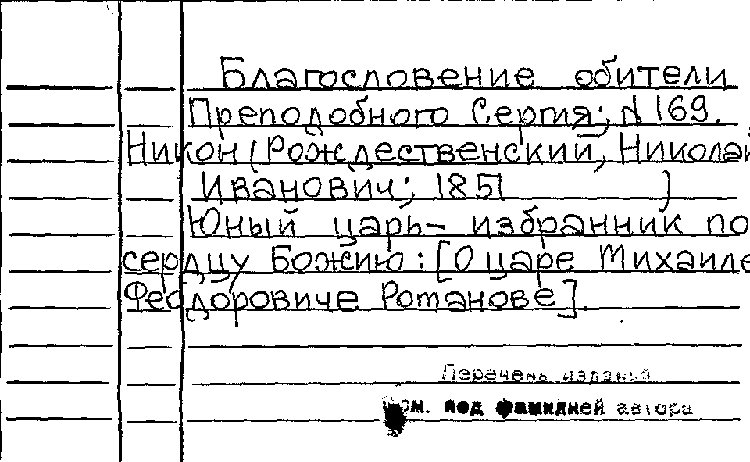 Благословение обители
Преподобного Сергия; № 169.
Никон (Рождественский, Николай
Иванович; 1851 )
Юный царь - избранник по
сердцу Божию: [О царе Михаиле
Феодоровиче Романове].
Перечень изданий
см. под фамилией автора